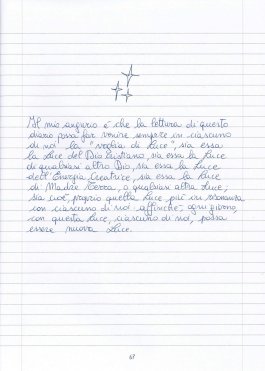 Il mio augurio è che la lettura di questo
diario possa far venire sempre in ciascuno
di noi la "voglia di Luce", sia essa
la Luce del Dio Cristiano, sia essa la Luce
di qualsiasi altro Dio, sia essa la Luce
dell'Energia Creatrice, sia essa la Luce
di Madre Terra, o qualsiasi altra Luce,
sia cioè proprio quella Luce più in risonanza
con ciascuno di noi affinché, ogni giorno,
con questa Luce, ciascuno di noi, possa
essere nuova Luce.
67